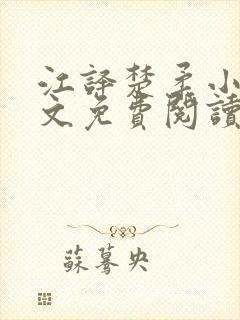 江譯楚柔小
文免費閱讀
蘇驀央